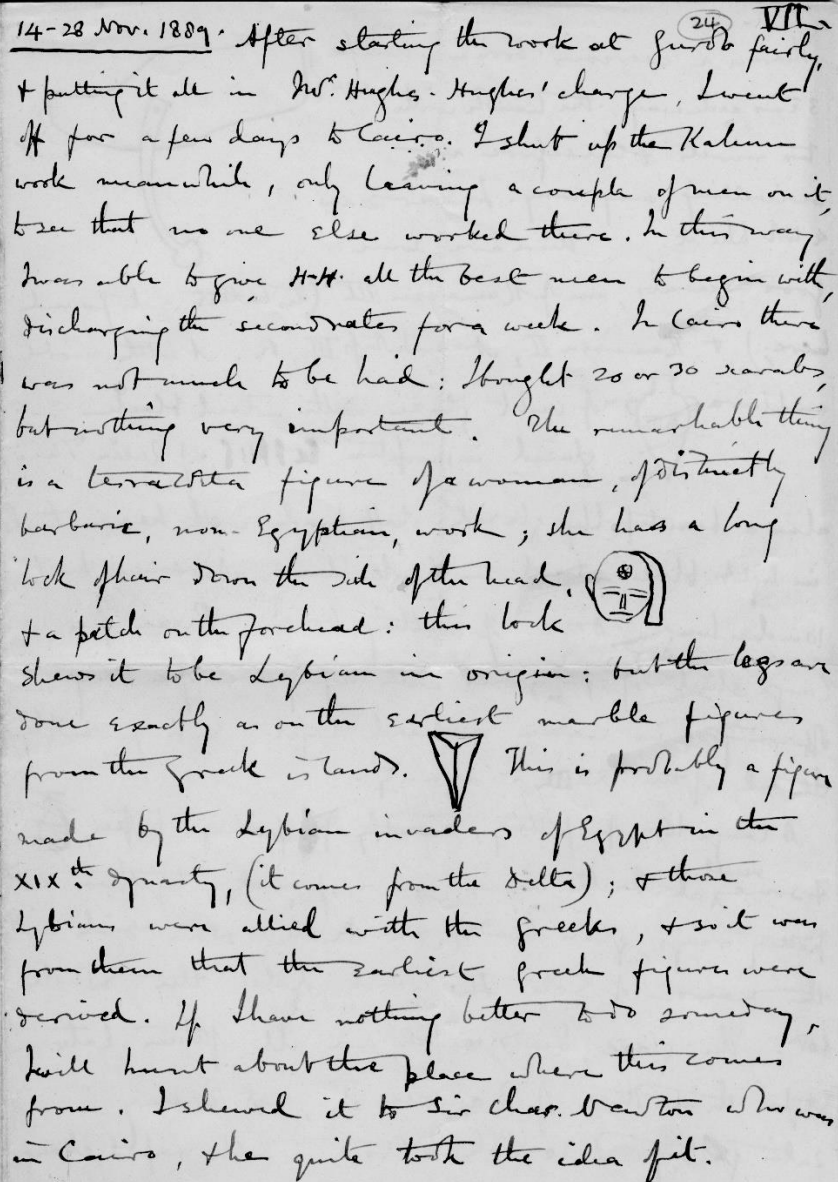 24 VII.
14-28 Nov. 1889. After starting the work at Gurob fairly,
& putting it all in Mr. Hughes-Hughes' charge, I went
off for a few days to Cairo. I shut up the Kahun
work meanwhile, only leaving a couple of men on it,
to see that no one else worked there. In this way
I was able to give H-H. all the best men to begin with,
discharging the second rates for a week. In Cairo there
was not much to be had: I bought 20 or 30 scarabs,
but nothing very important. The remarkable thing
is a terracotta figure of a woman, of distinctly
barbaric, non-Egyptian, work; she has a long
lock of hair down the side of the head,
& a patch on the forehead: this lock
shews it to be Lybian in origin: but the legs are
done exactly as on the earliest marble figures
from the Greek islands. This is probably a figure
made by the Lybian invaders of Egypt in the
XIXth. dynasty, (it comes from the Delta); & those
Lybians were allied with the Greeks, & so it was
from them that the earliest Greek figures were
derived. If I have nothing better to do someday,
I will hunt about the place where this comes
from. I shewed it to Sir Chas. Newton who was
in Cairo, & he quite took the idea